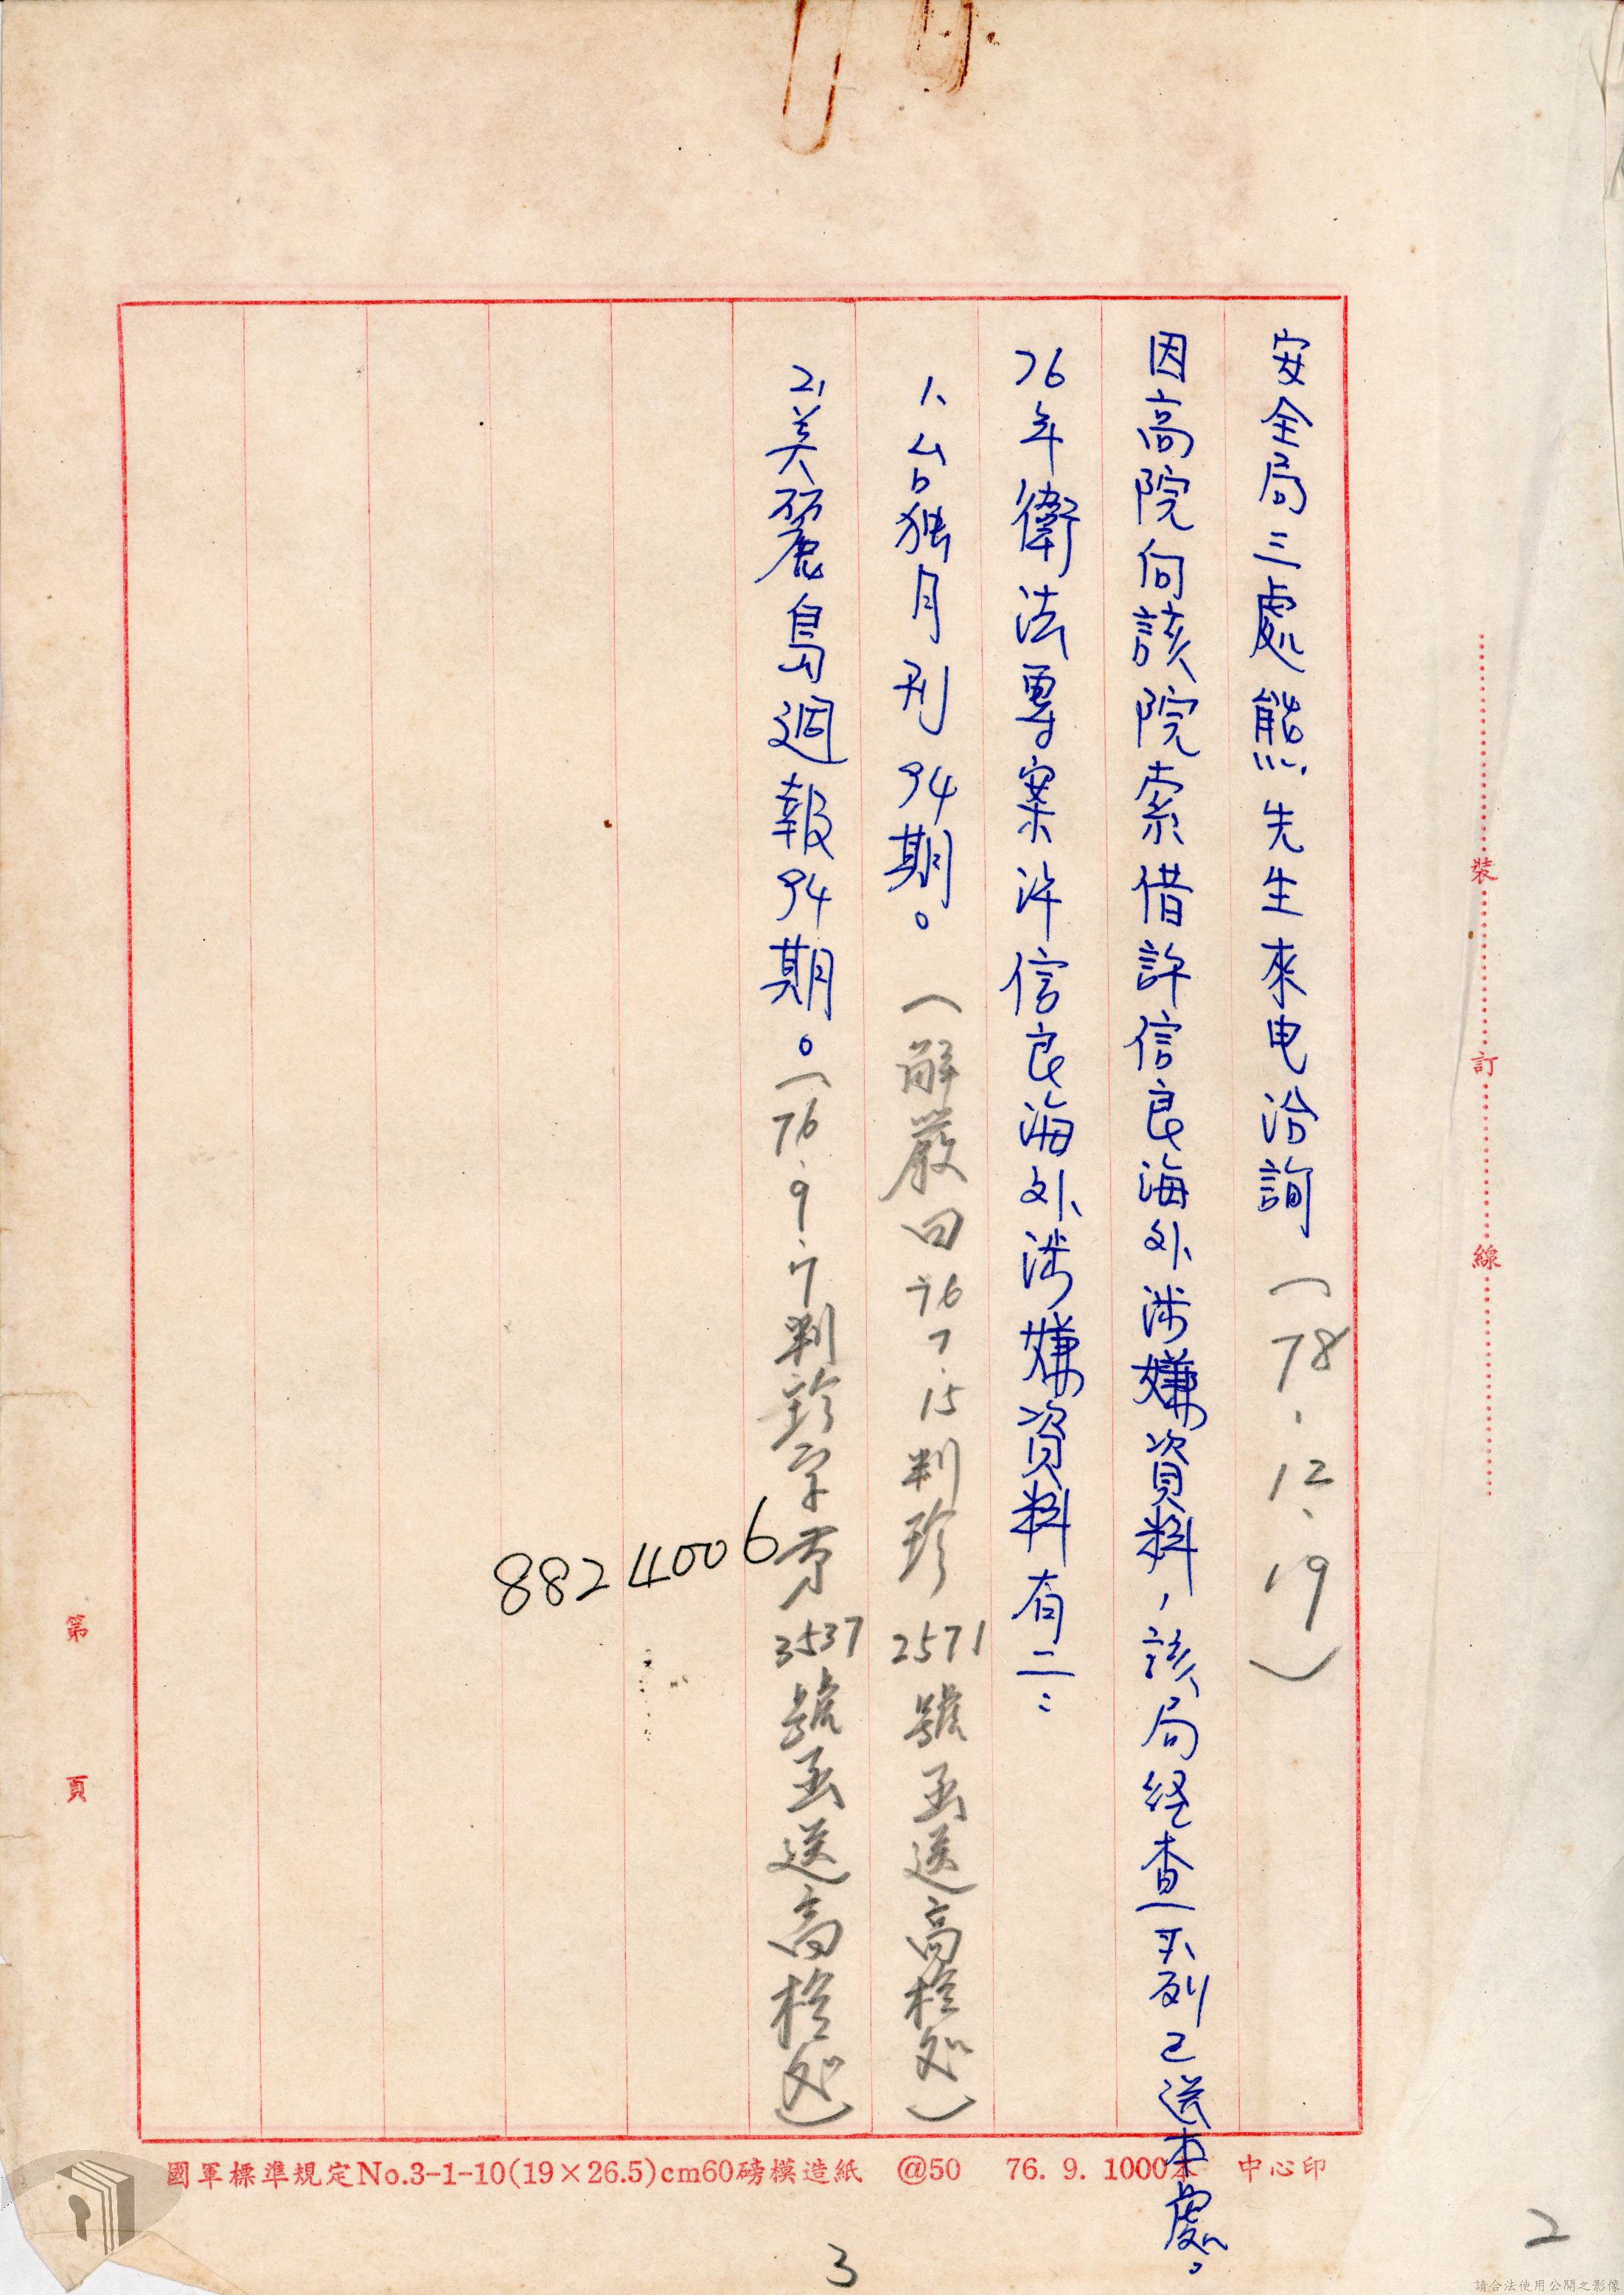 安全局三處熊先生來电洽詢(78.12.19)
因高院向該院索借許信良海外涉嫌資料,該局經查系列已送本處。
76年衛法專案許信良海外涉嫌資料有二:
1、台独月刊94期。(解嚴日76.7.15判珍2571號函送高檢处)
2、美麗島週報94期。(76.9.7判珍字第3537號函送高檢处)
8824006
裝 訂 線
第 頁
國軍標準規定No.3-1-10(19×26.5)cm60磅模造紙 @50 76. 9. 1000本 中心印
3
2
請合法使用公開之影像